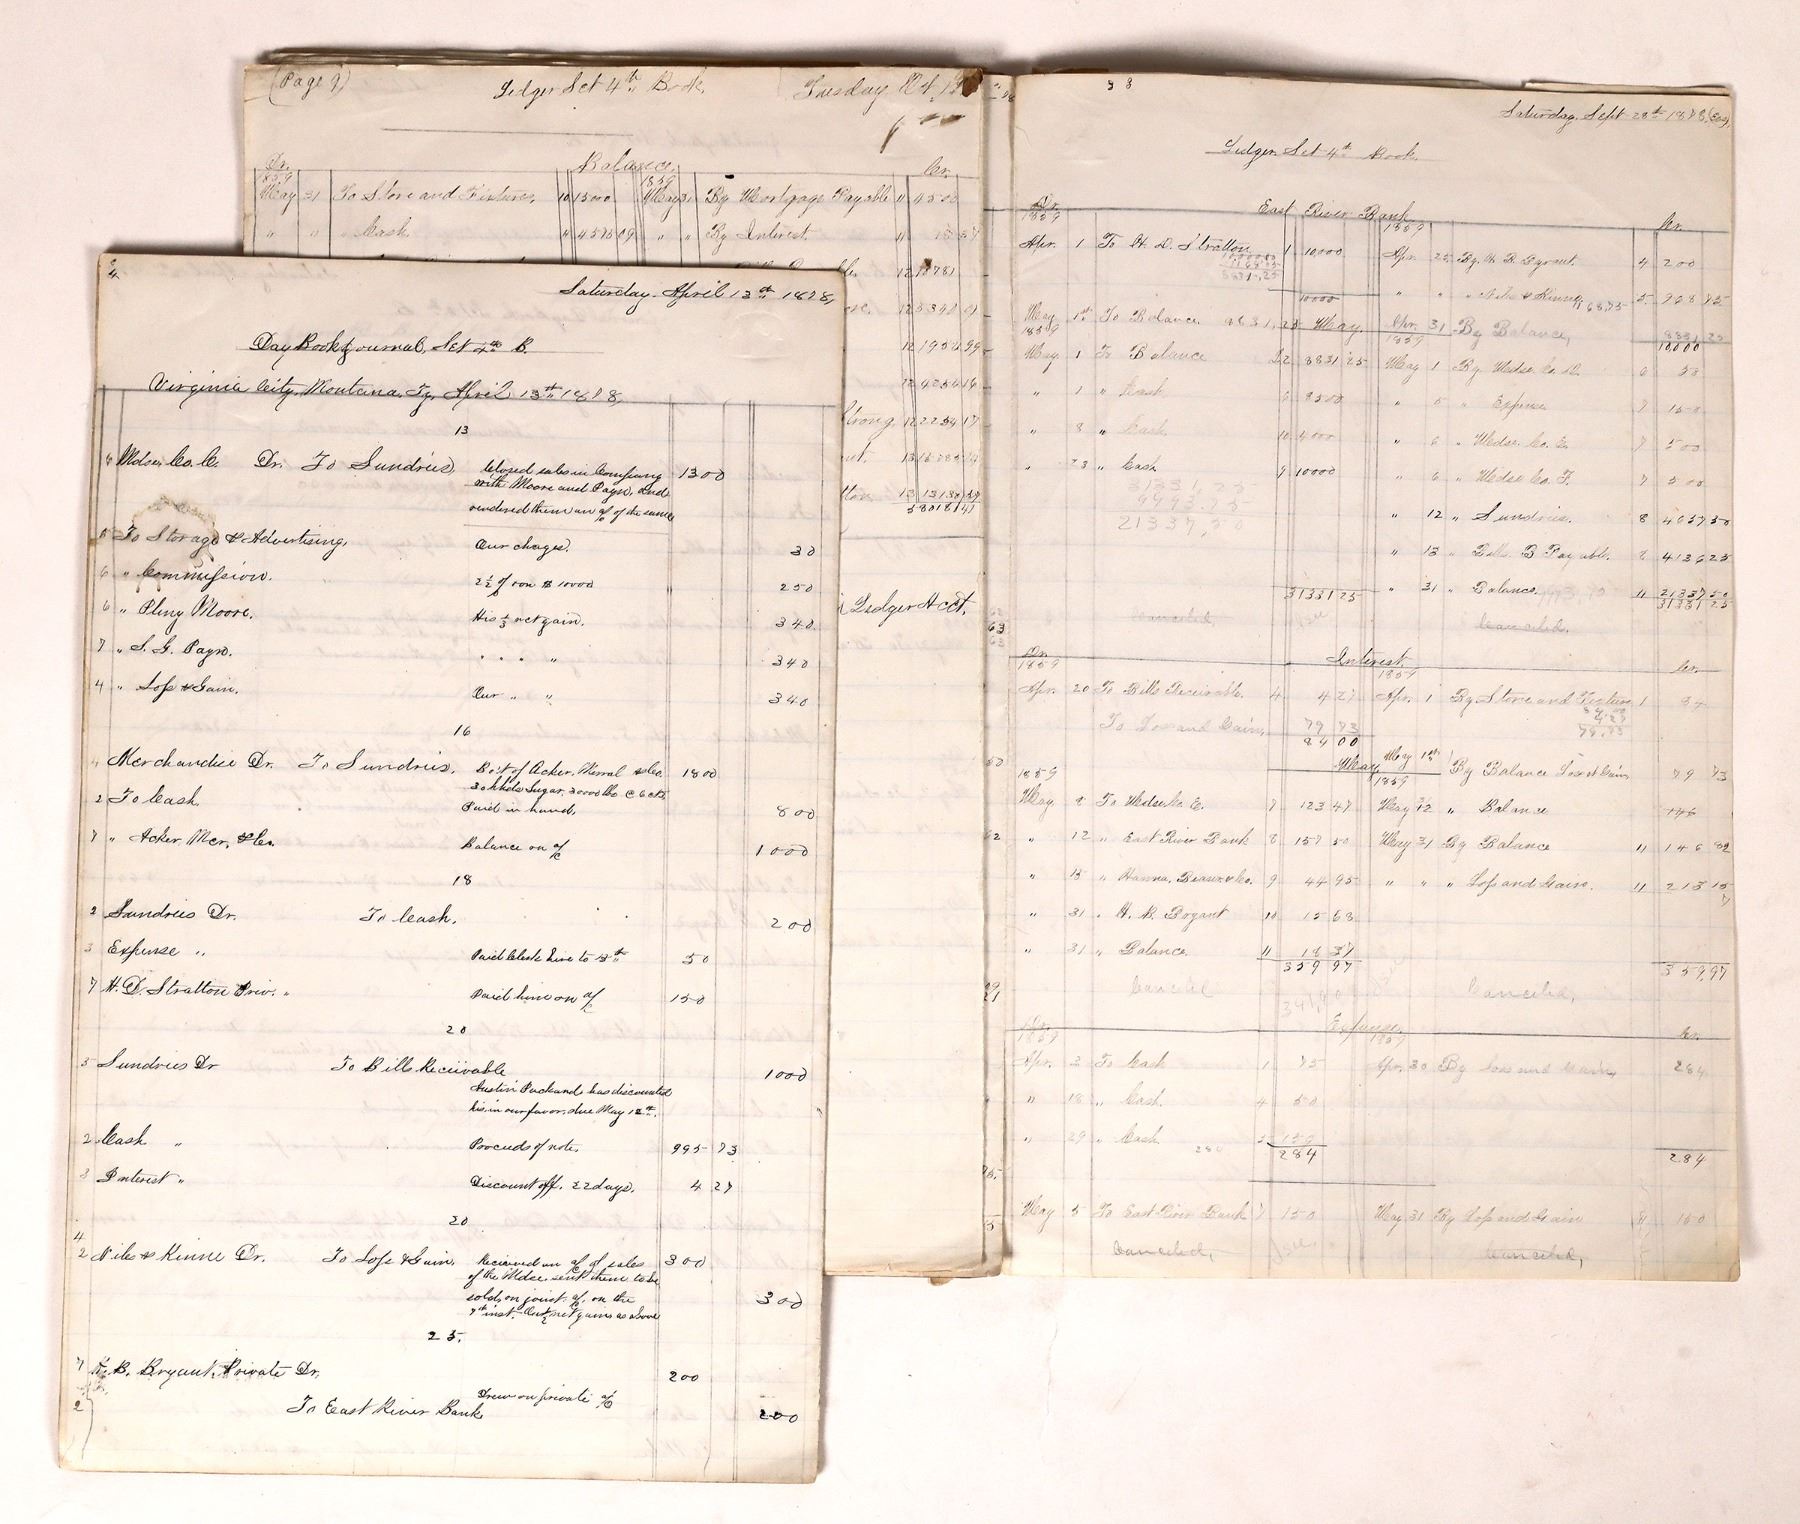 (Page 9)
Ledger Set 4th Book.
Tuesday Oct. 15
Balance.
Dr. Cr.
1859 1859
May 31 To Store and Fixtures, 10 1500 May 31 By Mortgage Payable 11 4500
" " " Cash 4575 09 " " By Interest. "
12 1878
12 534
12 195
12 425416
Strong 12 2254 17
13
13 1313
58018 41
Ledger Acct.
Saturday. April 13th 1878,
Day Book Journal, Set 4th B.
Virginia City, Montana, Ty, April 13th 1878,
13
6 Mdse. Co. C. Dr. To Sundries, Closed sales in Company 1300
with Moore and Payn, and
rendered them an a/c of the same
5 To Storage & Advertising, Our charges. 30
6 " Commission. 2 1/2 % on $ 10000 250
6 " Pliny Moore. His 1/3 net gain. 340
7 " S. G. Payn. " " " " 340
4 " Loss & Gain. Our " " 340
16
4 Merchandise Dr. To Sundries. Bo't of Acker, Merral & Co. 1800
30 hhds Sugar, 30000 lbs @ 6 cts
2 To Cash Paid in hand, 800
7 " Acker Mer. & Co. Balance on a/c 1000
18
2 Sundries Dr. To Cash. 200
3 Expense " Paid Clerk hire to 15th 50
7 H. D. Stratton Priv. " Paid him on a/c 150
20
5 Sundries Dr To Bills Receivable 1000
Austin Packard has discounted
his in our favor, due May 12th.
2 Cash " Proceeds of note, 995 73
3 Interest " Discount off. 22 days. 4 27
20
4
2 Niles & Kinne Dr. To Loss & Gain, Received an a/c of sales 300
of the Mdse. sent them to be
sold on joint a/c. on the
7th inst. Our 1/2 net gain as above 300
25.
7 H. B. Bryant Private Dr. 200
Drew on private a/c
2 To East River Bank 200
38
Saturday, Sept 28th 1878
Ledger Set 4th Book.
Dr. East River Bank Cr.
1859 1859
Apr. 1 To H. D. Stratton 1 10,000 Apr. 25 By H. B. Bryant. 4 200
10,000.00
1168.75
8831.25
" " " Niles & Kinne 1168.75 5 968 75
10000 Apr. 31 By Balance, 8831 25
10,000
May 1st To Balance. 8831.25 May
1859 1859
May 1 To Balance 8831 25 May 1 By Mdse. Co. D. 6 50
" 1 " Cash 6 8500 " 5 " Expense 7 150
" 8 " Cash 10 4000 " 6 " Mdse. Co. E. 7 500
" 23 " Cash 9 10000 " 6 " Mdse Co. F. 7 500
31331.25
9993.75
21337.50
" 12 " Sundries. 8 4657 50
" 13 " Bills. B Payable. 8 4136 25
31331 25 " 31 " Balance. 11 21337 50
31331 25
Canceled Canceled.
Dr. Interest. Cr.
1859 1859
Apr. 20 To Bills Receivable. 4 4 27 Apr. 1 By Store and Fixture 1 84
84.00
4.27
79.73
To Loss and Gain, 79 73
84 00
1859 May May 1st 1859 By Balance Loss & Gain 79 73
May 8 To Mdse. Co. E. 7 123 47 May 12 " Balance 146
" 12 " East River Bank 8 157 50 May 31 By Balance 11 146 82
" 15 " Hanna, Beaux & Co. 9 44 95 " " " Loss and Gain. 11 213 15
" 31 " H. B. Bryant 10 15 68
" 31 " Balance 11 18 37
359 97 359,97
Cancelled Canceled,
Expense. Cr.
1859 1859
Apr. 2 To Cash 1 75 Apr. 30 By Loss and Gain, 284
" 18 " Cash. 4 50
" 29 " Cash 5 159
284 284
284
May 5 To East River Bank 7 150 May 31 By Loss and Gain 11 150
Canceled, Canceled,